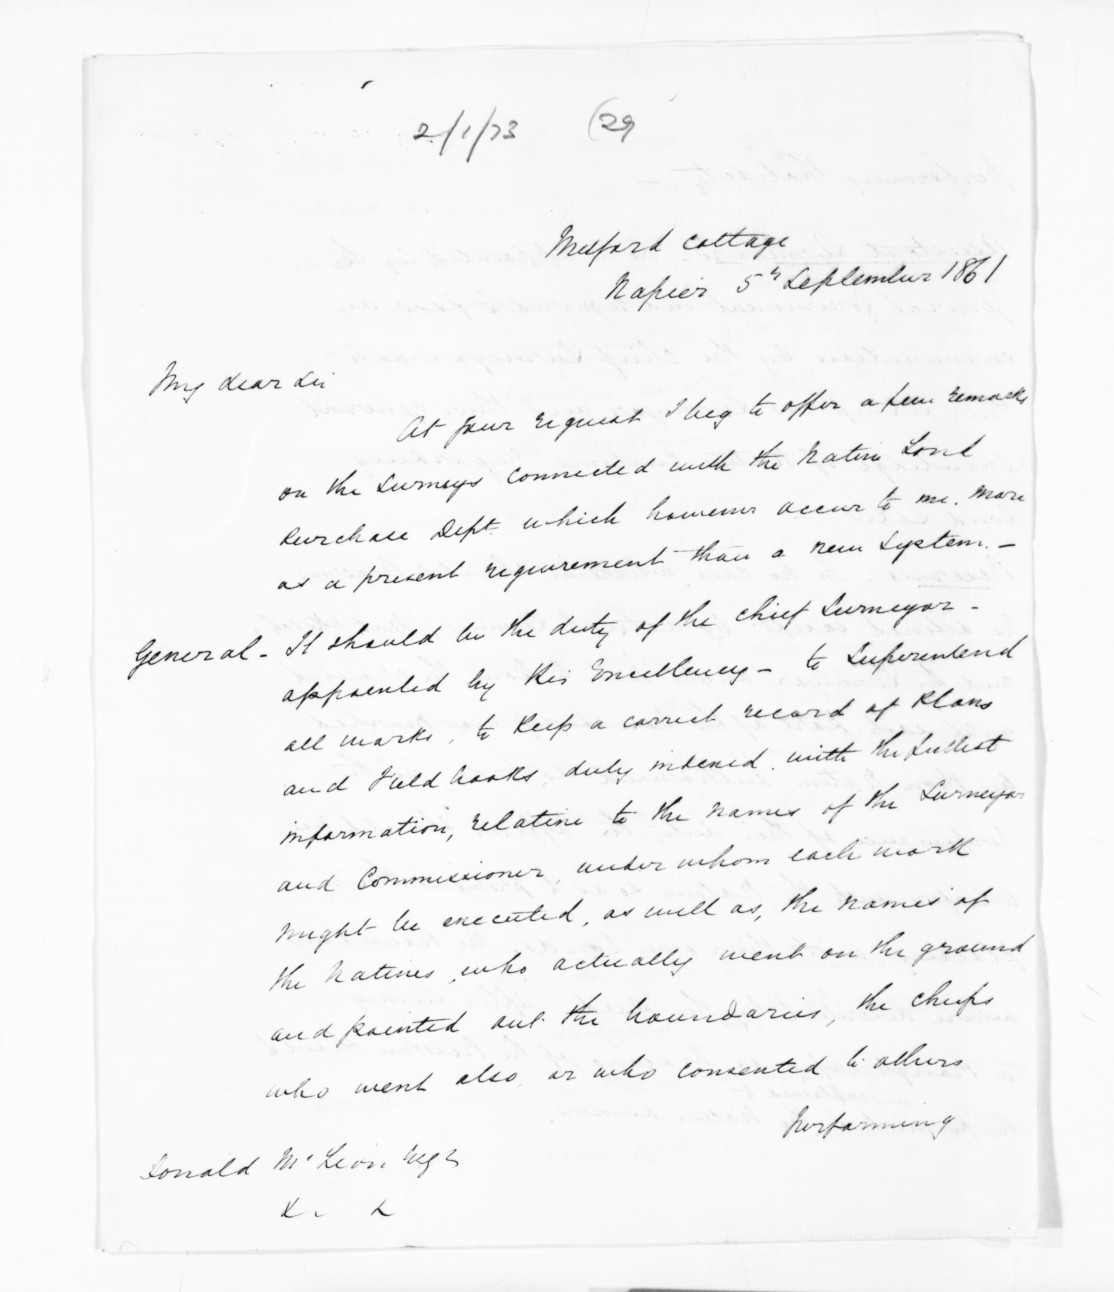 2/1/73 (29
Milford Cottage
Napier 5th September 1861
My dear Sir
At your request I beg to offer a few remarks
on the Surveys connected with the Native Land
Purchase Dept. which however occur to me. more
as a present requirement than a new System. -
General - It should be the duty of the Chief Surveyor -
appointed by His Excellency - to Superintend
all works, to keep a correct record of Plans
and Field books, duly indexed. with the fullest
information, relative to the names of the Surveyor
and Commissioner, under whom each work
might be executed, as well as, the names of
the Natives, who actually went on the ground
and pointed out the boundaries, the chiefs
who went also, or who consented to others
performing
Donald McLean Esqr
&. &